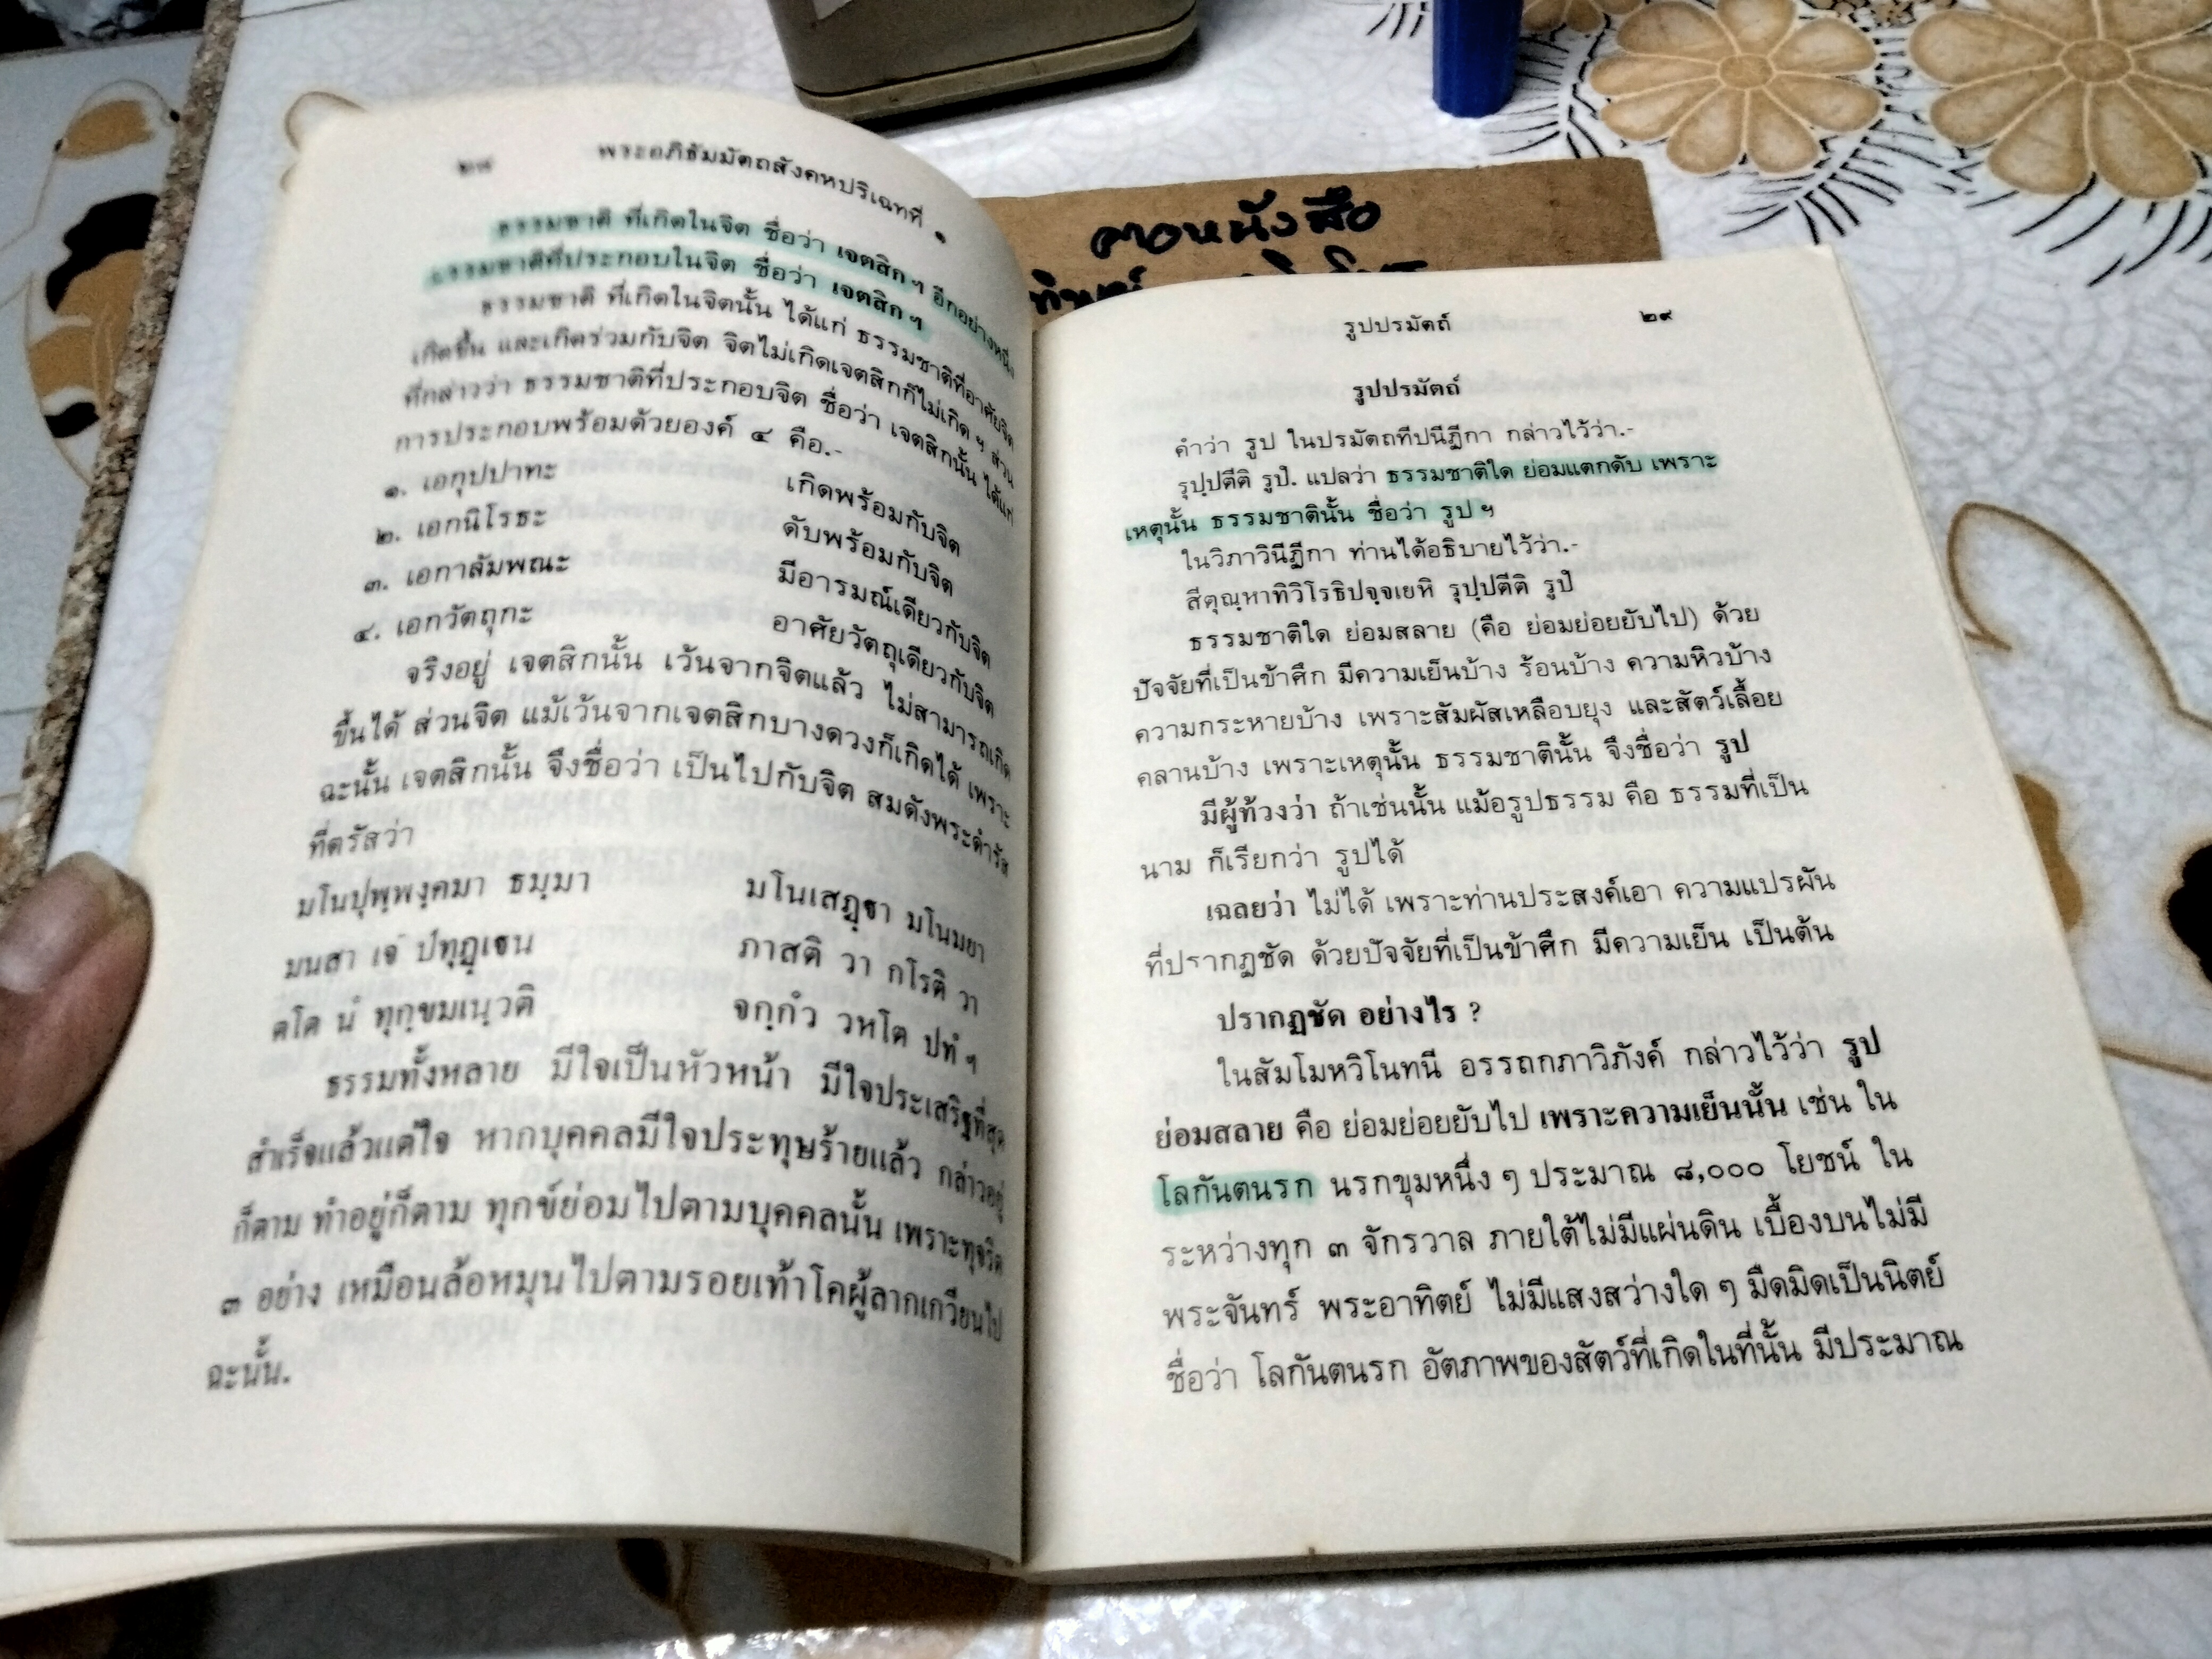 ๒๘ พระอภิธัมมัตถสังคหปริเฉทที่ ๑
ธรรมชาติ ที่เกิดในจิต ชื่อว่า เจตสิก ฯ อีกอย่างหนึ่ง
ธรรมชาติที่ประกอบในจิต ชื่อว่า เจตสิก ฯ
ธรรมชาติ ที่เกิดในจิตนั้น ได้แก่ ธรรมชาติที่อาศัยจิต
เกิดขึ้น และเกิดร่วมกับจิต จิตไม่เกิดเจตสิกก็ไม่เกิด ฯ ส่วน
ที่กล่าวว่า ธรรมชาติที่ประกอบจิต ชื่อว่า เจตสิกนั้น ได้แก่
การประกอบพร้อมด้วยองค์ ๔ คือ.-
๑. เอกุปปาทะ เกิดพร้อมกับจิต
๒. เอกนิโรธะ ดับพร้อมกับจิต
๓. เอกาลัมพณะ มีอารมณ์เดียวกับจิต
๔. เอกวัตถุกะ อาศัยวัตถุเดียวกับจิต
จริงอยู่ เจตสิกนั้น เว้นจากจิตแล้ว ไม่สามารถเกิด
ขึ้นได้ ส่วนจิต แม้เว้นจากเจตสิกบางดวงก็เกิดได้ เพราะ
ฉะนั้น เจตสิกนั้น จึงชื่อว่า เป็นไปกับจิต สมดังพระดำรัส
ที่ตรัสว่า
มโนปุพฺพงฺคมา ธมฺมา มโนเสฏฺฐา มโนมยา
มนสา เจ ปทุฏฺเฐน ภาสติ วา กโรติ วา
ตโต นํ ทุกฺขมเนฺวติ จกฺกํว วหโต ปทํ ฯ
ธรรมทั้งหลาย มีใจเป็นหัวหน้า มีใจประเสริฐที่สุด
สำเร็จแล้วแต่ใจ หากบุคคลมีใจประทุษร้ายแล้ว กล่าวอยู่
ก็ตาม ทำอยู่ก็ตาม ทุกข์ย่อมไปตามบุคคลนั้น เพราะทุจริต
๓ อย่าง เหมือนล้อหมุนไปตามรอยเท้าโคผู้ลากเกวียนไป
ฉะนั้น.
คาดหนังสือ
รูปปรมัตถ์ ๒๙
รูปปรมัตถ์
คำว่า รูป ในปรมัตถทีปนีฎีกา กล่าวไว้ว่า.-
รุปฺปตีติ รูปํ. แปลว่า ธรรมชาติใด ย่อมแตกดับ เพราะ
เหตุนั้น ธรรมชาตินั้น ชื่อว่า รูป ฯ
ในวิภาวินีฎีกา ท่านได้อธิบายไว้ว่า.-
สีตุณฺหาทิวิโรธิปจฺจเยหิ รุปฺปตีติ รูปํ
ธรรมชาติใด ย่อมสลาย (คือ ย่อมย่อยยับไป) ด้วย
ปัจจัยที่เป็นข้าศึก มีความเย็นบ้าง ร้อนบ้าง ความหิวบ้าง
ความกระหายบ้าง เพราะสัมผัสเหลือบยุง และสัตว์เลื้อย
คลานบ้าง เพราะเหตุนั้น ธรรมชาตินั้น จึงชื่อว่า รูป
มีผู้ท้วงว่า ถ้าเช่นนั้น แม้อรูปธรรม คือ ธรรมที่เป็น
นาม ก็เรียกว่า รูปได้
เฉลยว่า ไม่ได้ เพราะท่านประสงค์เอา ความแปรผัน
ที่ปรากฏชัด ด้วยปัจจัยที่เป็นข้าศึก มีความเย็น เป็นต้น
ปรากฏชัด อย่างไร ?
ในสัมโมหวิโนทนี อรรถกภาวิภังค์ กล่าวไว้ว่า รูป
ย่อมสลาย คือ ย่อมย่อยยับไป เพราะความเย็นนั้น เช่น ใน
โลกันตนรก นรกขุมหนึ่ง ๆ ประมาณ ๘,๐๐๐ โยชน์ ใน
ระหว่างทุก ๓ จักรวาล ภายใต้ไม่มีแผ่นดิน เบื้องบนไม่มี
พระจันทร์ พระอาทิตย์ ไม่มีแสงสว่างใด ๆ มืดมิดเป็นนิตย์
ชื่อว่า โลกันตนรก อัตภาพของสัตว์ที่เกิดในที่นั้น มีประมาณ